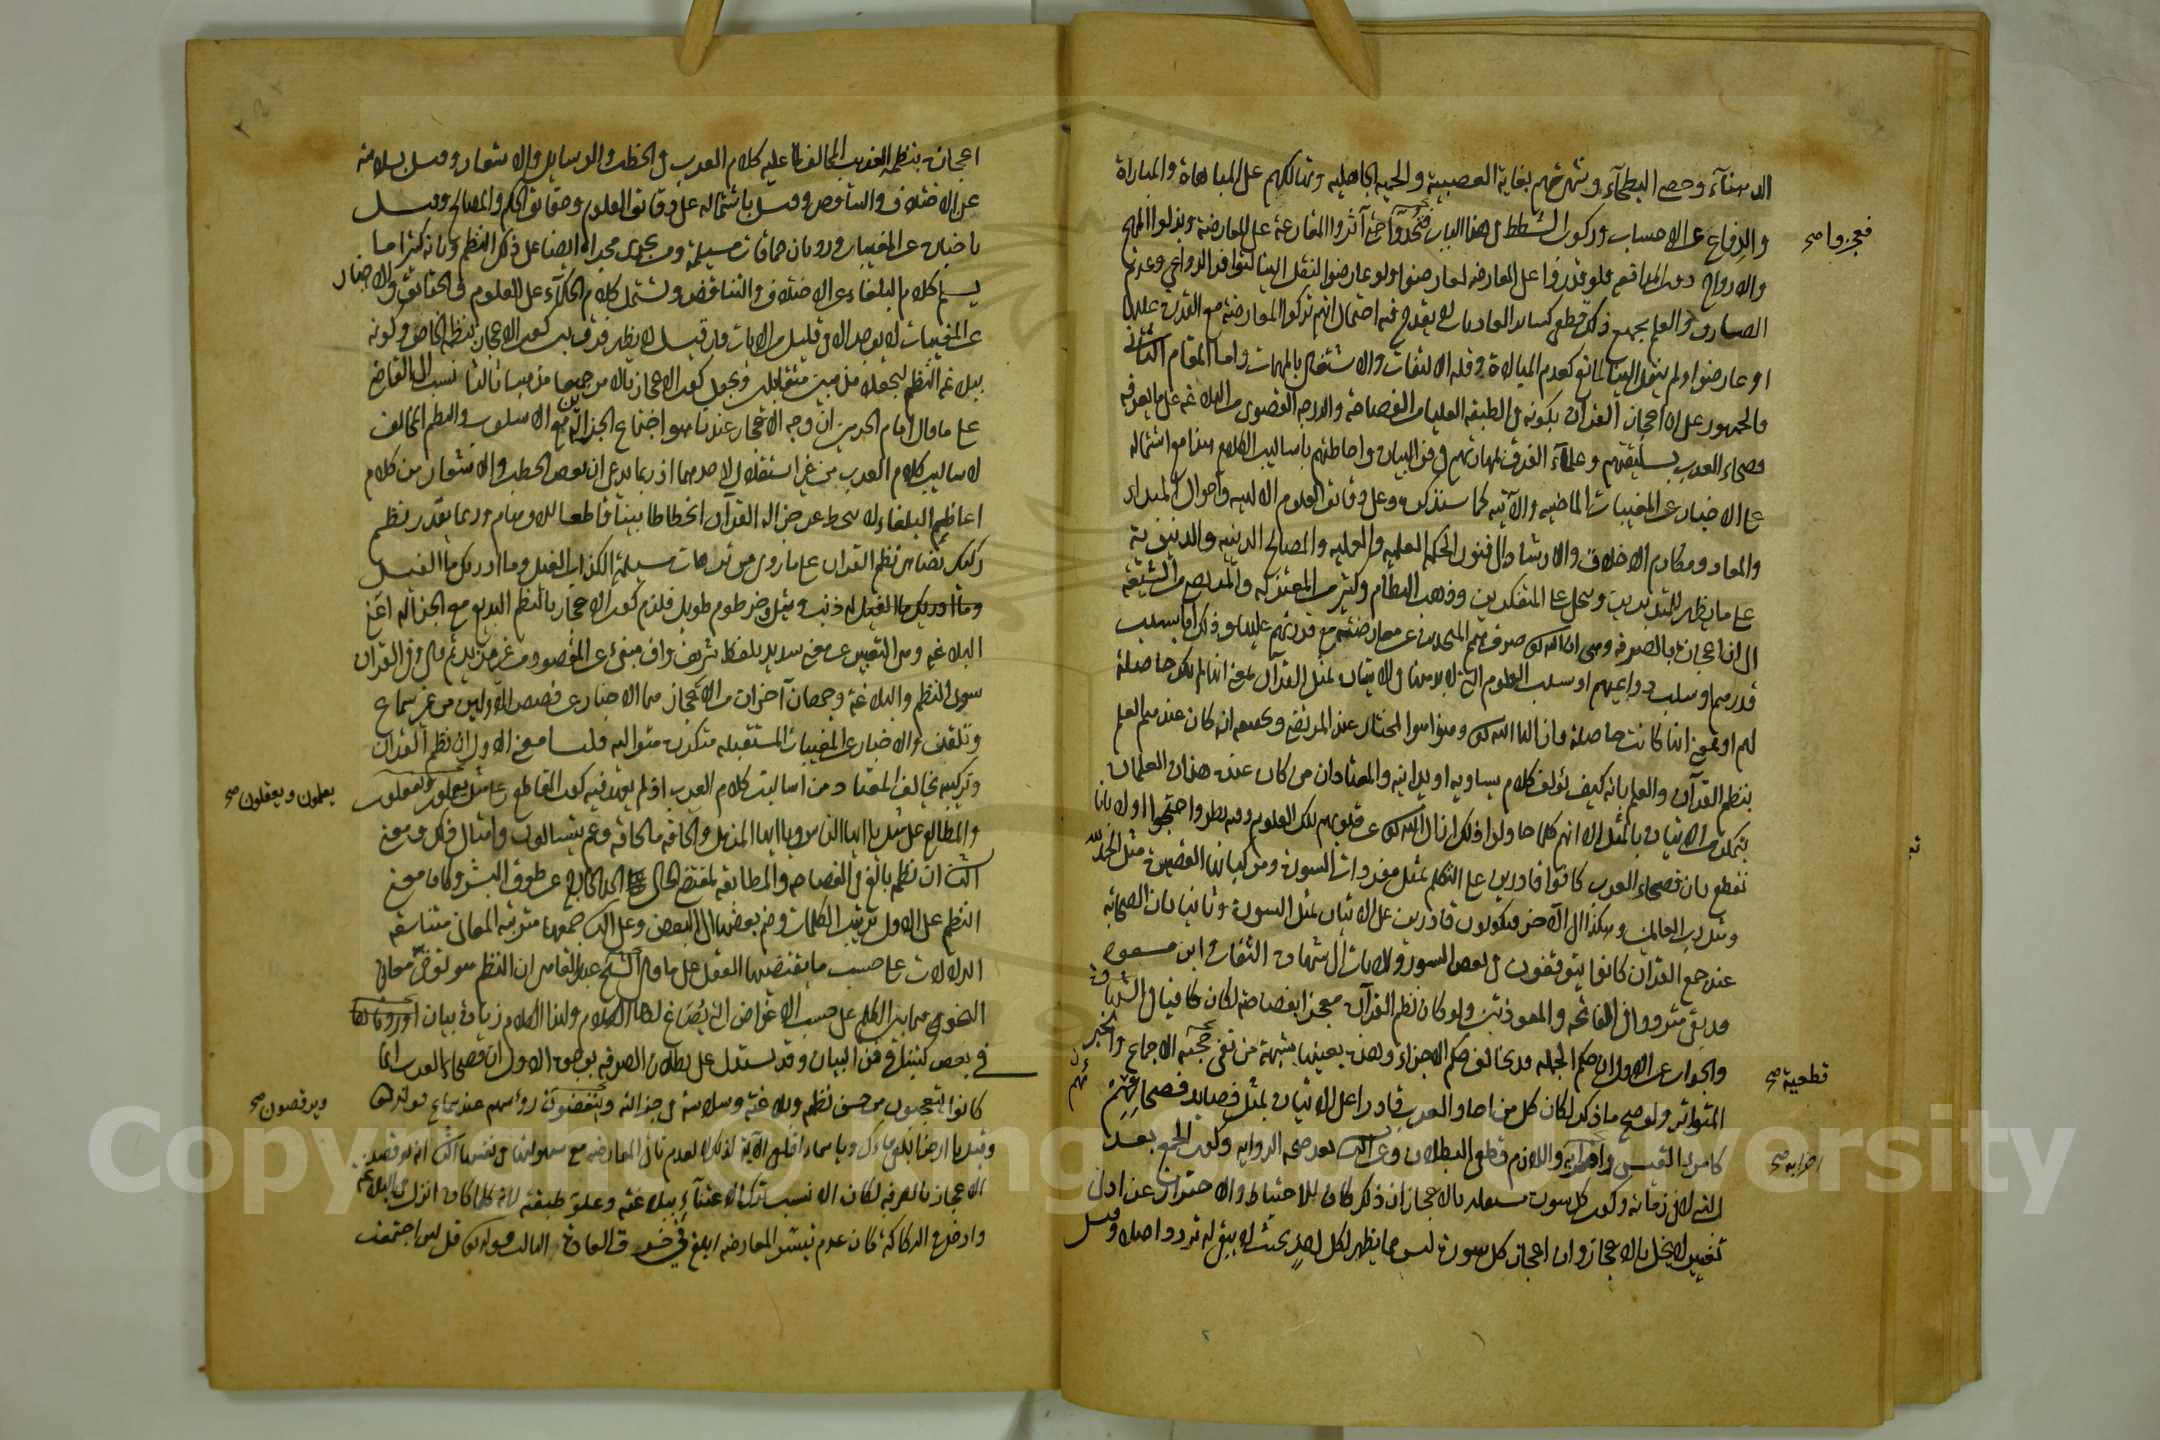 الدهناء وحصى البطحاء وشهرتهم بغاية العصبية والحمية الجاهلية وتهالكهم على المباهاة والمباراة
والدفاع عن الاحساب وركوب الشطط في هذا الباب فتحدوا حتى آثروا المقارعة على المعارضة وبذلوا المهج
فعجزوا صح
والارواح دون المدافعة فلو قدروا على المعارضة لعارضوا ولو عارضوا لنقل الينا لتوفر الدواعي وعدم
الصارف والعلم بجميع ذلك قطعي كساير العاديات لا يقدح فيه احتمال انهم تركوا المعارضة مع القدرة عليها
او عارضوا ولم ينقل الينا لمانع كعدم المبالاة وقلة الالتفات والاشتغال بالمهمات واما المقام الثاني
فالجمهور على ان اعجاز القرآن بكونه في الطبقة العليا من الفصاحة والدرجة القصوى من البلاغة على ما يعرفه
فصحاء العرب بسليقتهم وعلماء الفرق بمهارتهم في فن البيان واحاطتهم باساليب الكلام هذا مع اشتماله
على الاخبار عن المغيبات الماضية والآتية كما سنذكره وعلى دقايق العلوم الالهية واحوال المبدا
والمعاد ومكارم الاخلاق والارشاد الى فنون الحكمة العلمية والعملية والمصالح الدينية والدنيوية
على ما يظهر للمتدبرين ويتجلى على المتفكرين وذهب النظام وكثير من المعتزلة والمرتضى من الشيعة
الى ان اعجازه بالصرفة وهي ان الله تعالى صرف همم المتحدين عن معارضته مع قدرتهم عليها وذلك اما بسلب
قدرتهم او سلب دواعيهم او سلب العلوم التي لا بد منها في الاتيان بمثل القرآن بمعنى انها لم تكن حاصلة
لهم او بمعنى انها كانت حاصلة فازالها الله تعالى وهذا هو المختار عند المرتضى وتحقيقه انه كان عندهم العلم
بنظم القرآن والعلم بانه كيف يؤلف كلام يساويه او يدانيه والمعتاد ان من كان عنده هذان العلمان
يتمكن من الاتيان بالمثل الا انهم كلما حاولوا ذلك ازال الله تعالى عن قلوبهم تلك العلوم وفيه نظر واحتجوا اولا بانا
نقطع بان فصحاء العرب كانوا قادرين على التكلم بمثل مفردات السورة ومركباتها القصيرة مثل الحمد لله
ومثل رب العالمين وهكذا الى الآخر فيكونون قادرين على الاتيان بمثل السورة وثانيا بان الصحابة
عند جمع القرآن كانوا يتوقفون في بعض السور والايات الى شهادة الثقات وابن مسعود
قد بقي مترددا في الفاتحة والمعوذتين ولو كان نظم القرآن معجزا بفصاحته لكان كافيا في الشهادة
والجواب عن الاول ان حكم الجملة قد يخالف حكم الاجزاء وهذه بعينها شبهة من نفى حجية الاجماع والخبر
قطعية صح
المتواتر ولو صح ما ذكر لكان كل من احاد العرب قادرا على الاتيان بمثل قصايد فصحائهم
كامرئ القيس واضرابه واللازم قطعي البطلان وعن الثاني بعد صحة الرواية وكون الجمع بعد
اضرابه صح
النبي لا في زمانه وكون كل سورة مستقلة بالاعجاز ان ذلك كان للاحتياط والاحتراز عن ادنى
تغيير لا يخل بالاعجاز وان اعجاز كل سورة ليس مما يظهر لكل احد بحيث لا يبقى له تردد اصلا وقيل
اعجازه بنظمه الغريب المخالف لما عليه كلام العرب في الخطب والرسايل والاشعار وقيل بسلامته
عن الاختلاف والتناقض وقيل باشتماله على دقايق العلوم وحقايق الحكم والمصالح وقيل
باخباره عن المغيبات ورد بان حماقات مسيلمة ومن يجري مجراه ايضا على ذلك النظم وبانه كثيرا ما
يسلم كلام البلغاء عن الاختلاف والتناقض ويشتمل كلام الحكماء على العلوم في الحقايق والاخبار
عن المغيبات لا يوجد الا في قليل من الايات فان قيل لا يظهر فرق بين كون الاعجاز بنظمه الخاص وكونه
ببلاغة النظم ليجعلا مذهبين متقابلين ويجعل كون الاعجاز بالامرين جميعا مذهبا ثالثا نسب الى القاضي
على ما قال امام الحرمين ان وجه الاعجاز عندنا هو اجتماع الجزالة مع الاسلوب والنظم المخالف
لاساليب كلام العرب من غير استقلال لاحدهما اذ ربما يدعى ان بعض الخطب والاشعار من كلام
اعاظم البلغاء لا ينحط عن جزالة القرآن انحطاطا بينا قاطعا للاوهام وربما يقدر نظم
ركيك يضاهي نظم القرآن على ما روي من ترهات مسيلمة الكذاب الفيل وما ادريك ما الفيل
وما ادريك ما الفيل له ذنب وثيل وخرطوم طويل فلزم كون الاعجاز بالنظم البديع مع الجزالة اعني
البلاغة وهي التعبير عن معنى سديد بلفظ شريف واف منبئ عن المقصود من غير مزيد ثم قال وفي القرآن
سوى النظم والبلاغة وجهان آخران من الاعجاز هما الاخبار عن قصص الاولين من غير سماع
وتلقن والاخبار عن المغيبات المستقبلة متكررة متوالية قلنا معنى الاول ان نظم القرآن
وتركيبه يخالف المعتاد من اساليب كلام العرب اذ لم يعهد فيه كون المقاطع على مثل يعلمون ويفعلون
يعلمون ويعقلون صح
والمطالع على مثل يا ايها الناس ويا ايها المزمل والحاقة ما الحاقة وعم يتسالون وامثال ذلك ومعنى
الثاني ان نظمه بالغ في الفصاحة والمطابقة لمقتضى الحال الحد الخارج عن طوق البشر وكان معنى
النظم على الاول ترتيب الكلمات وضم بعضها الى البعض وعلى الثاني جمعها مترتبة المعاني متناسقة
الدلالات على حسب ما يقتضيها العقل على ما قال الشيخ عبد القاهر ان النظم هو توخي معاني
النحو فيما بين الكلم على حسب الاغراض التي يصاغ لها الكلام ولهذا الكلام زيادة بيان اوردناها
في بعض كتبنا في فن البيان وقد يستدل على بطلان الصرفة بوجوه الاول ان فصحاء العرب انما
كانوا يتعجبون من حسن نظمه وبلاغته وسلاسته في جزالته وينغضون رؤسهم عند سماع قوله تعالى
ويرقصون صح
وقيل يا ارض ابلعي ماءك ويا سماء اقلعي الآية لذلك لا لعدم تاتي المعارضة مع سهولتها في نفسها الثاني انه لو قصد
الاعجاز بالصرفة لكان الانسب ترك الاعتناء ببلاغته وعلو طبقته لانه كلما كان انزل في البلاغة
وادخل في الركاكة كان عدم تيسر المعارضة ابلغ في خرق العادة الثالث قوله تعالى قل لئن اجتمعت